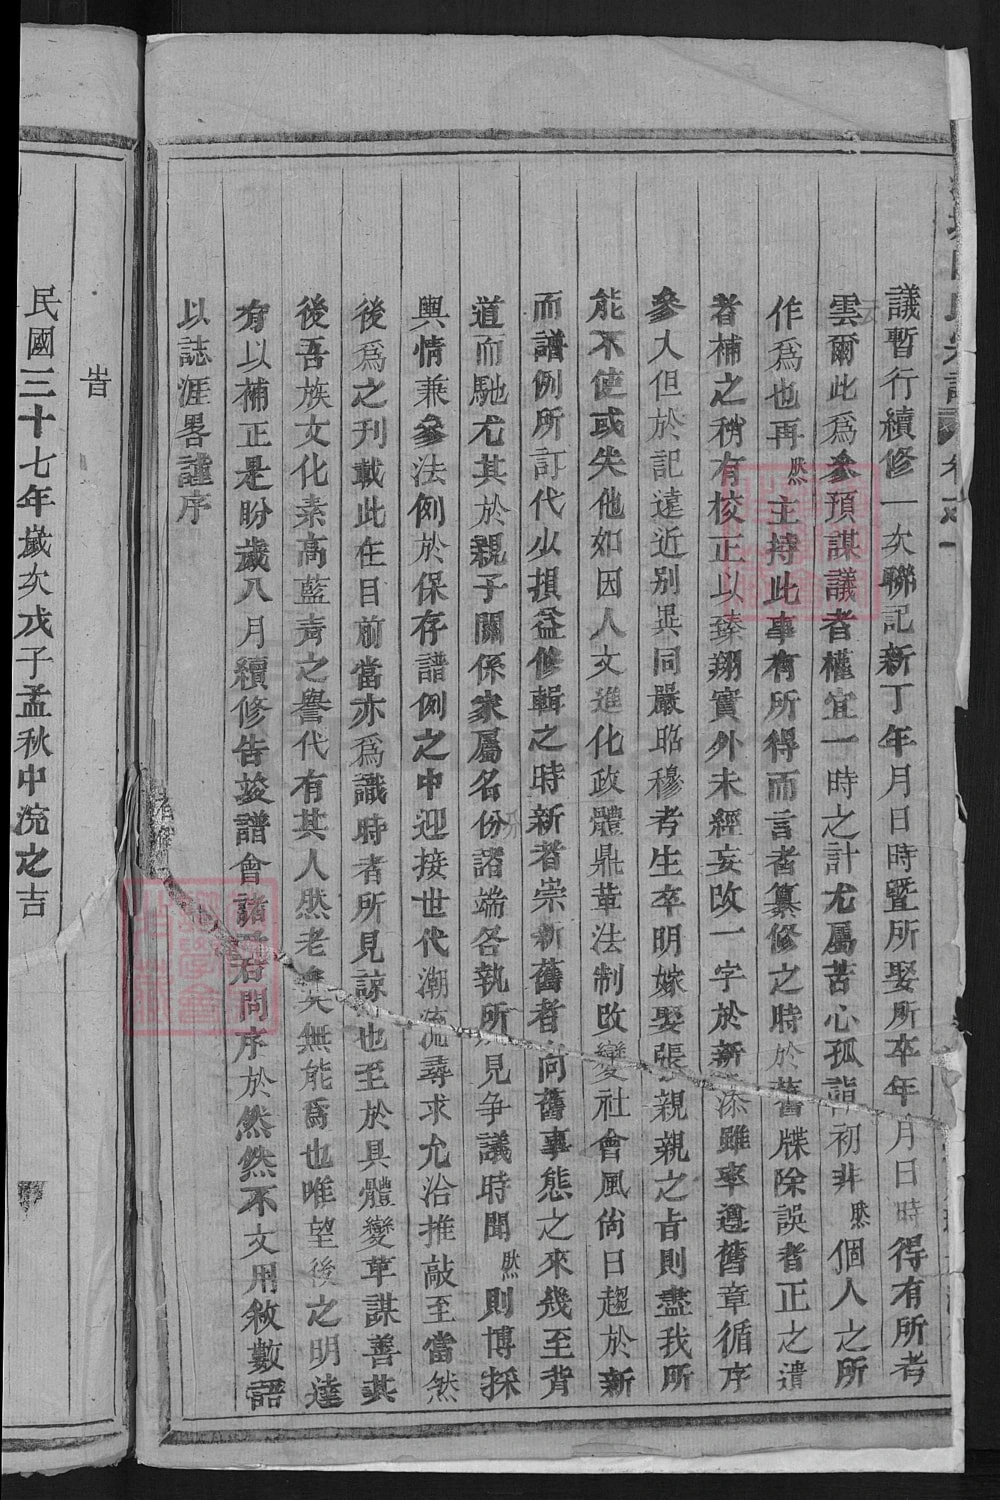 議暫行續修一次聯記新丁年月日時暨所娶所卒年月日時得有所考
雲爾此爲參預謀議者權宜一時之計尤屬苦心孤詣初非然個人之所
作爲也再然主持此事有所得而言者纂修之時於舊牒除誤者正之遺
者補之稍有校正以臻翔實外未經妄改一字於新添雖率遵舊章循序
參入但於記遠近別異同嚴昭穆考生卒明嫁娶張親親之旨則盡我所
能不使或失他如因人文進化政體鼎革法制改變社會風尙日趨於新
而譜例所訂代少損益修輯之時新者崇新舊者尙舊事態之來幾至背
道而馳尤其於親子關係家屬名份諸端各執所見争議時聞然則博採
輿情兼參法例於保存譜例之中迎接世代潮流尋求允洽推敲至當然
後爲之刋載此在目前當亦爲識時者所見諒也至於具體變革謀善其
後吾族文化素高藍靑之譽代有其人然老矣無能爲也唯望後之明達
有以補正是盼歲八月續修告竣譜會諸君問序於然然不文用敘數語
以誌涯畧謹序
旹
民國三十七年歲次戊子孟秋中浣之吉